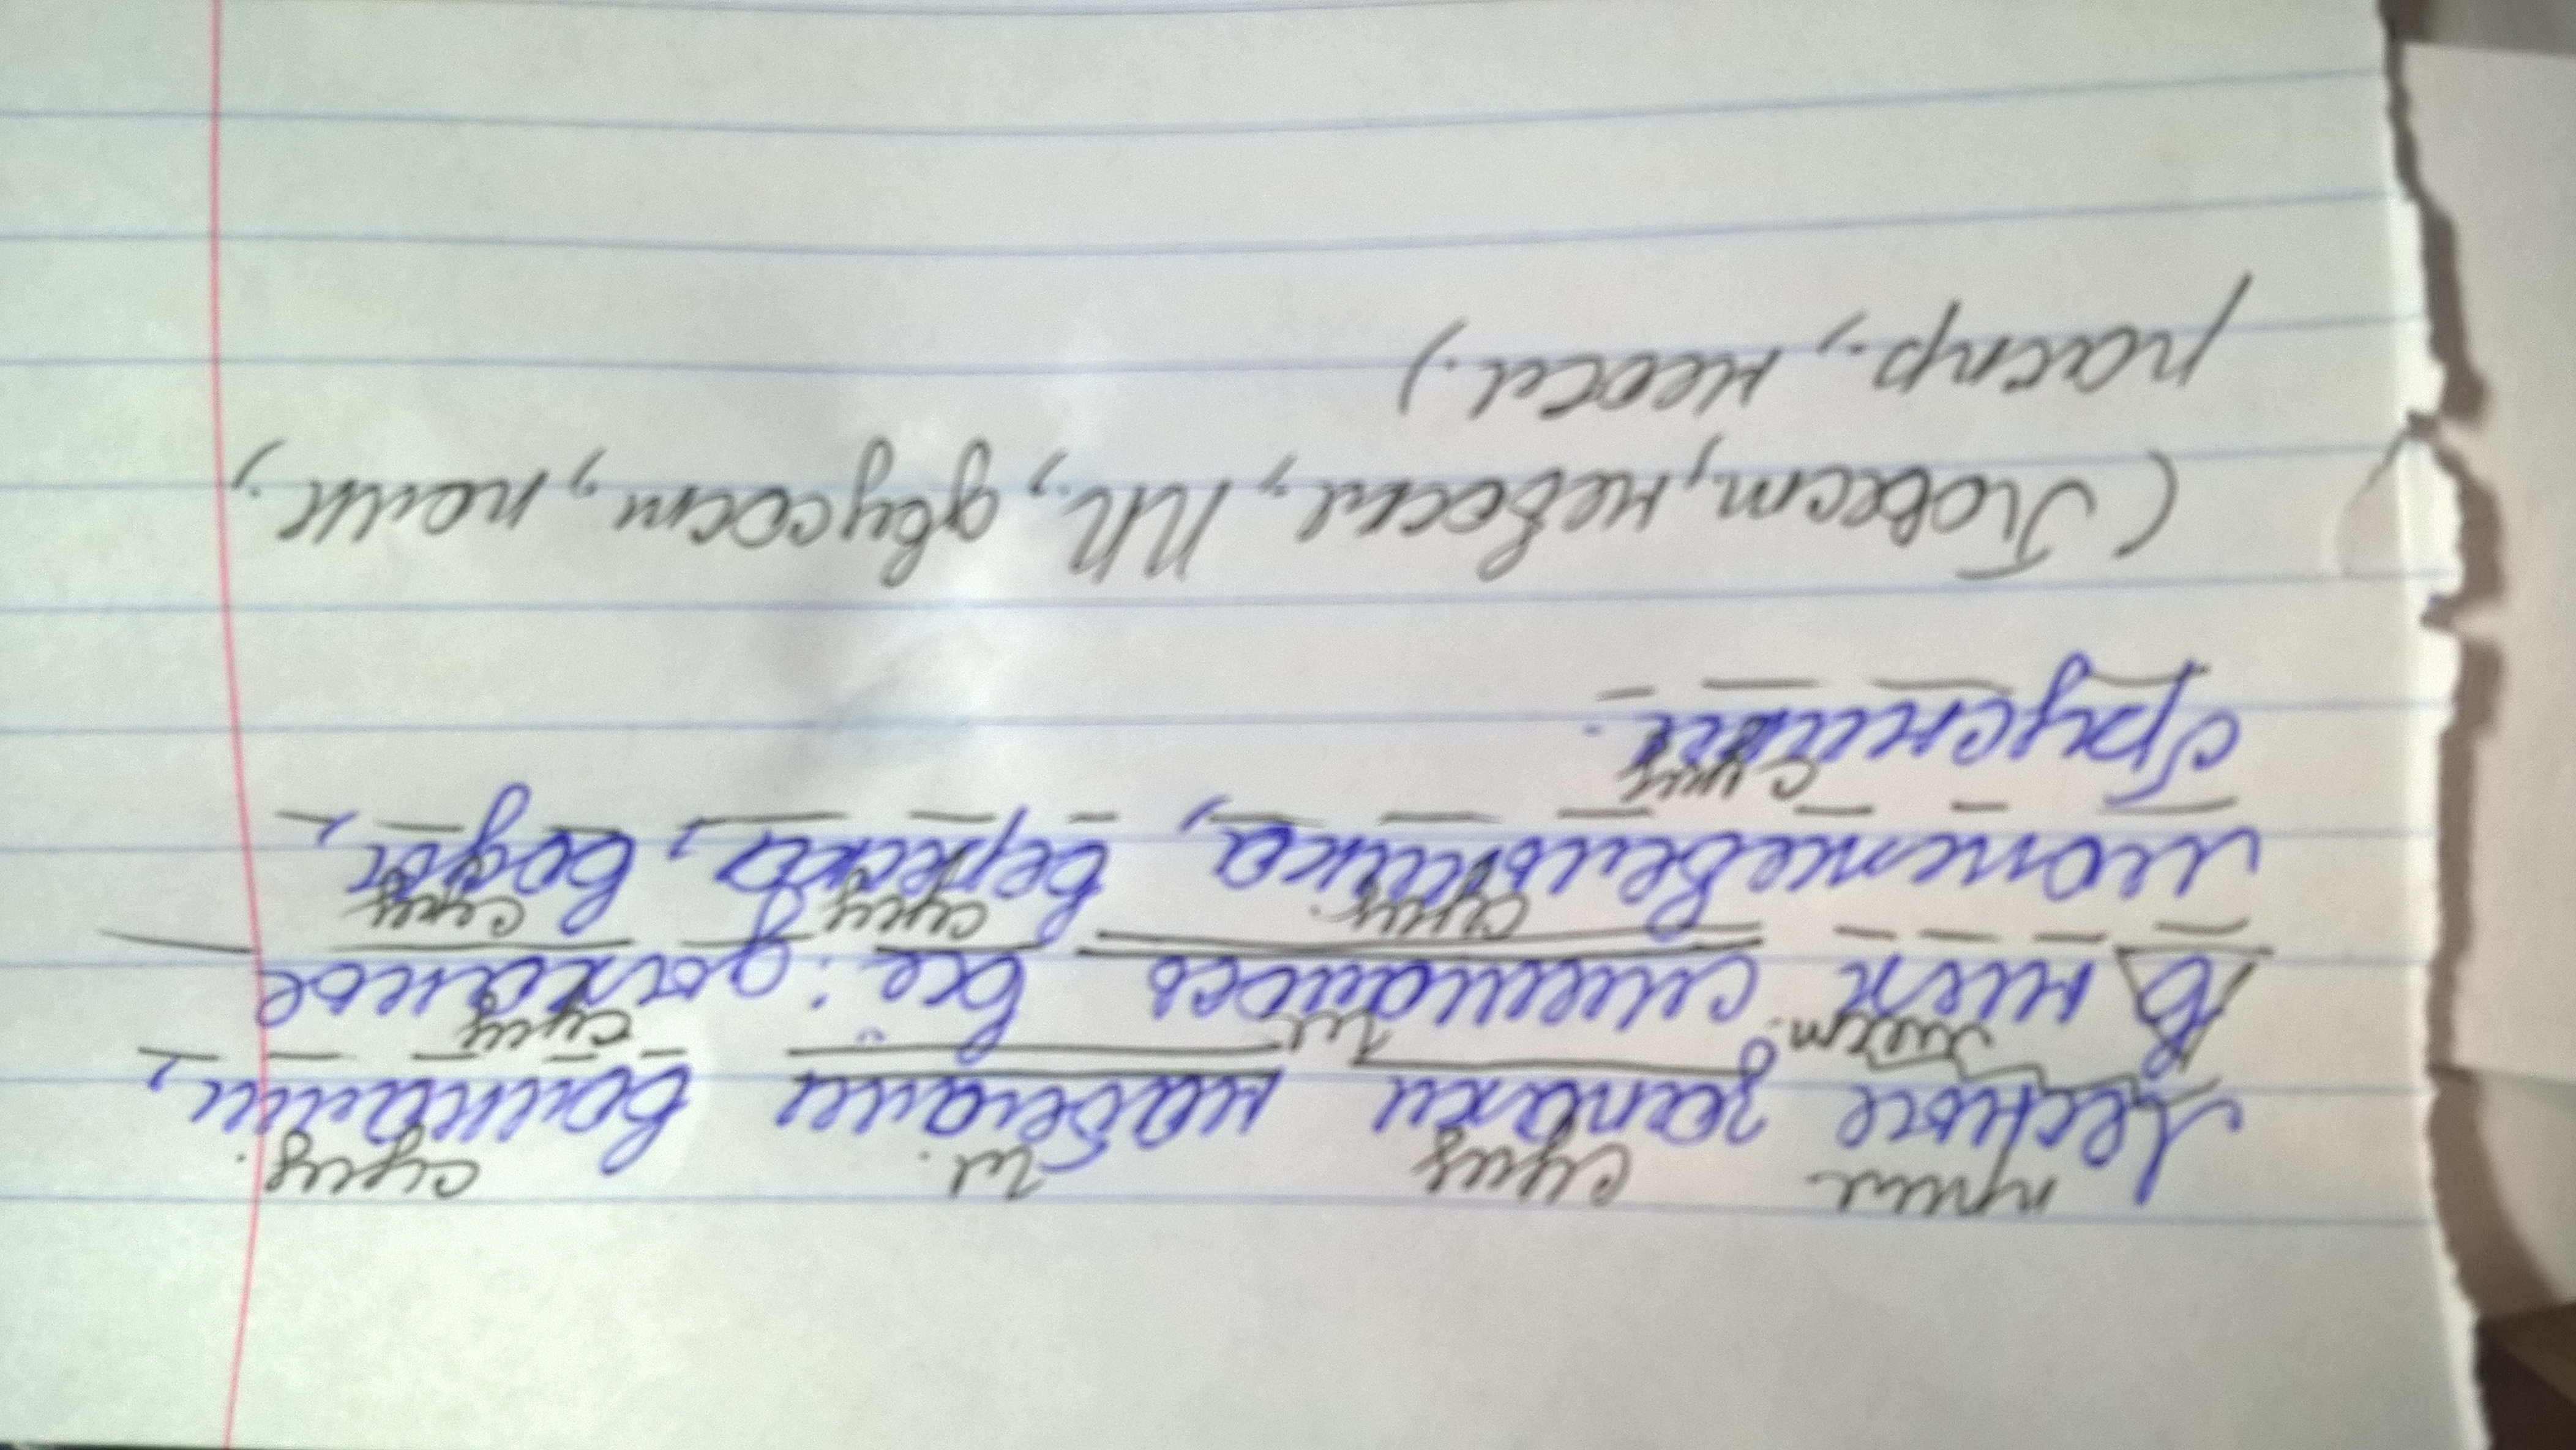 прил. сущ гл. сущ.
Лесные запахи набегали волнами,
мест. гл сущ
В них смешалось всё: дыхание
сущ. сущ сущ
можжевельника, вереска, воды,
сущ
брусники.
(Повест, невоскл., ПП., двусост, полн.,
распр., неосл.)